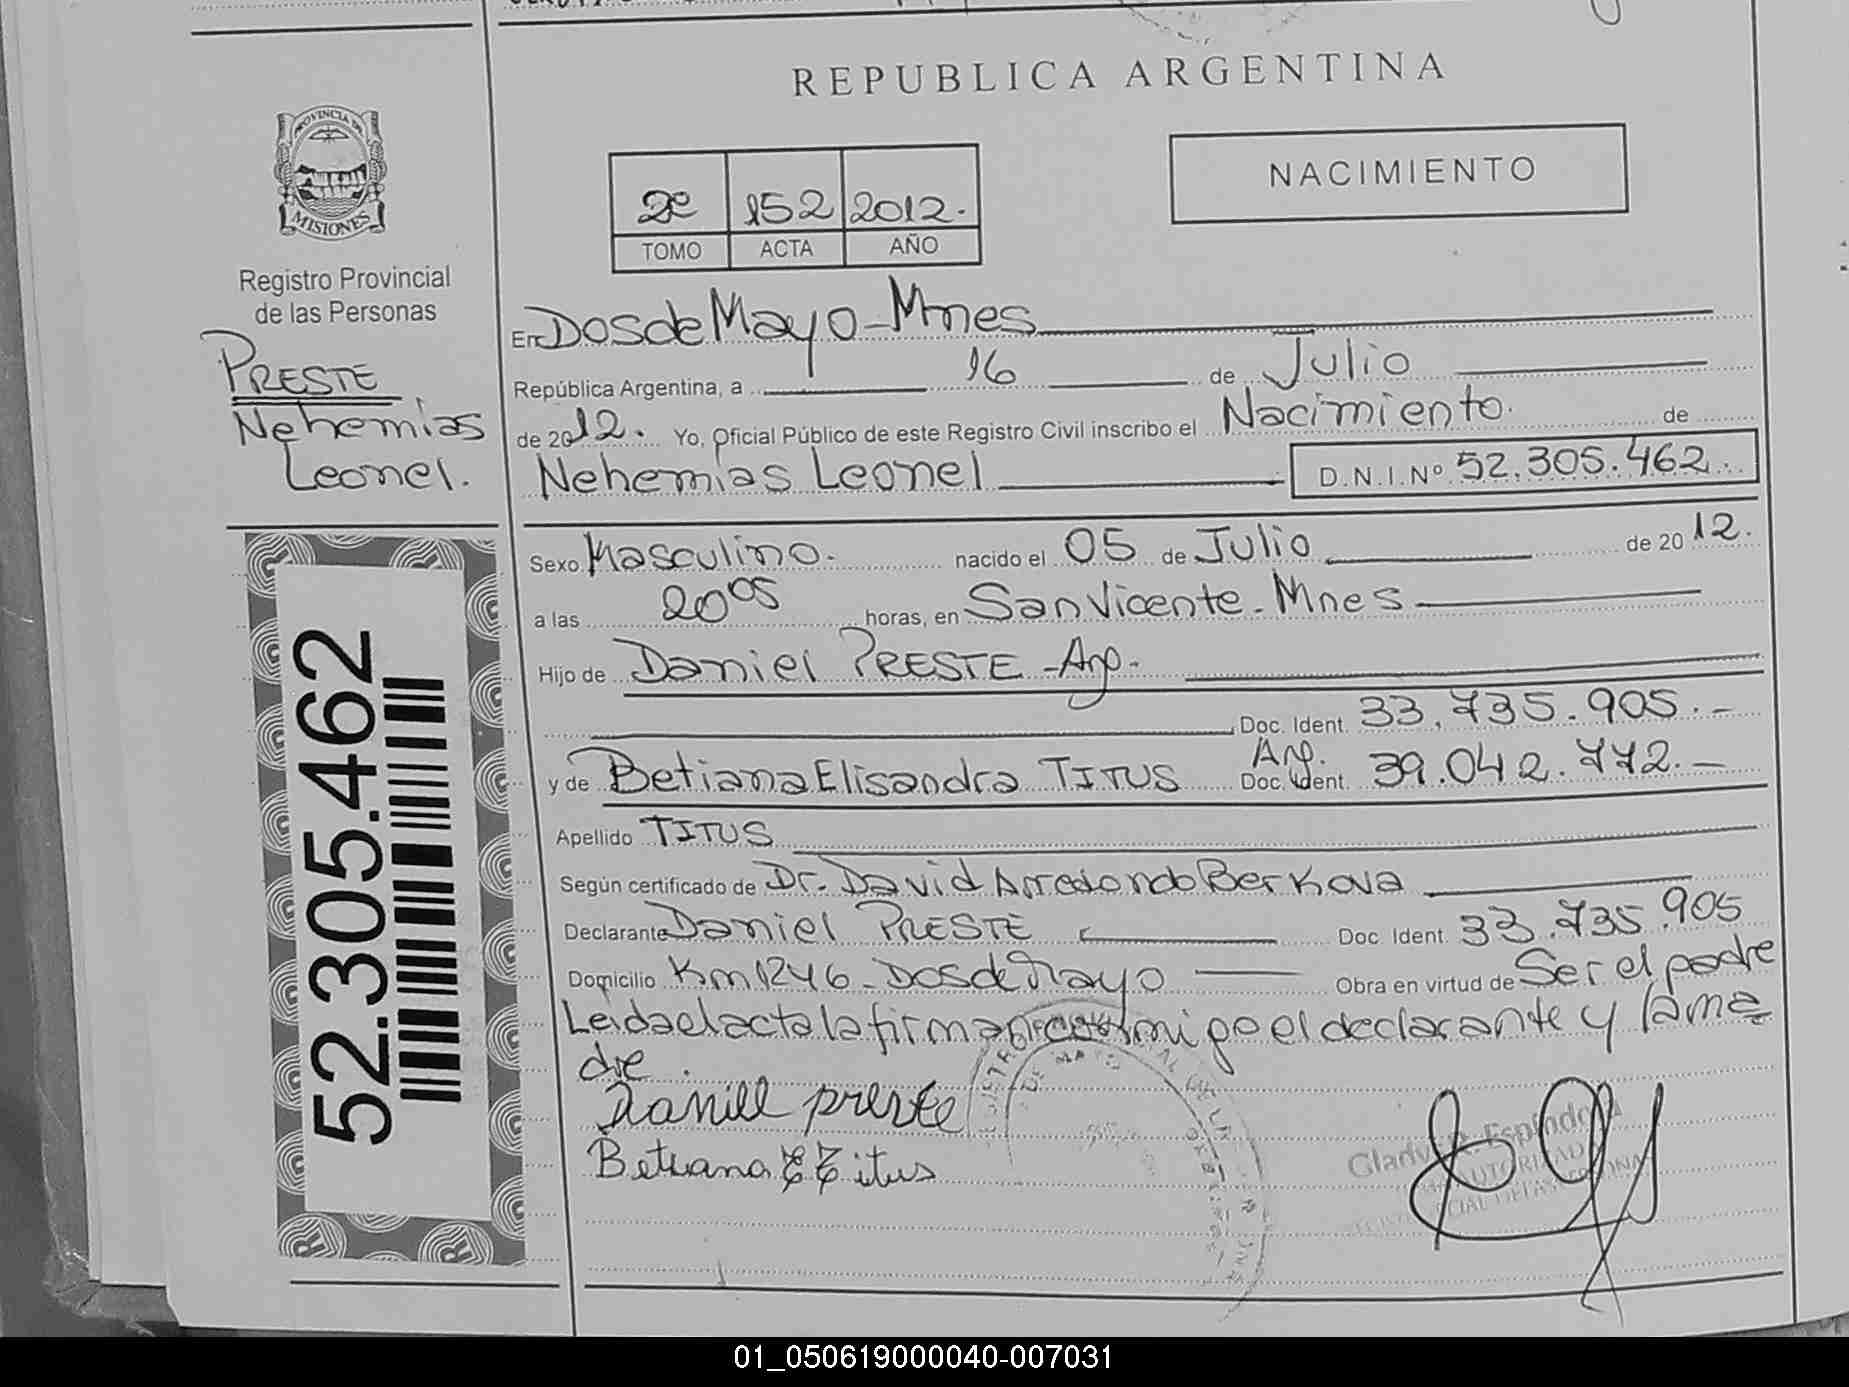 REPUBLICA ARGENTINA
PROVINCIA DE
MISIONES
Registro Provincial
de las Personas
PRESTE
Nehemias
Leonel.
52.305.462
2º 152 2012.
TOMO ACTA AÑO
NACIMIENTO
En Dos de Mayo - Mnes
República Argentina, a 16 de Julio
de 2012. Yo, Oficial Público de este Registro Civil inscribo el Nacimiento. de
Nehemias Leonel D.N.I.Nº 52.305.462.
Sexo Masculino. nacido el 05 de Julio de 2012.
a las 20 05 horas, en San Vicente - Mnes
Hijo de Daniel PRESTE - Arg.
Doc. Ident. 33.735.905.-
y de Betiana Elisandra TITUS Arg. Doc. Ident. 39.042.772.-
Apellido TITUS
Según certificado de Dr. David Arredondo Berkova
Declarante Daniel PRESTE Doc. Ident. 33.735.905
Domicilio Km 1246 - Dos de Mayo Obra en virtud de Ser el padre
Leida el acta la firman conmigo el declarante y la ma
dre.
Daniel preste
Betiana E Titus
Gladys R. Espindola
01_050619000040-007031